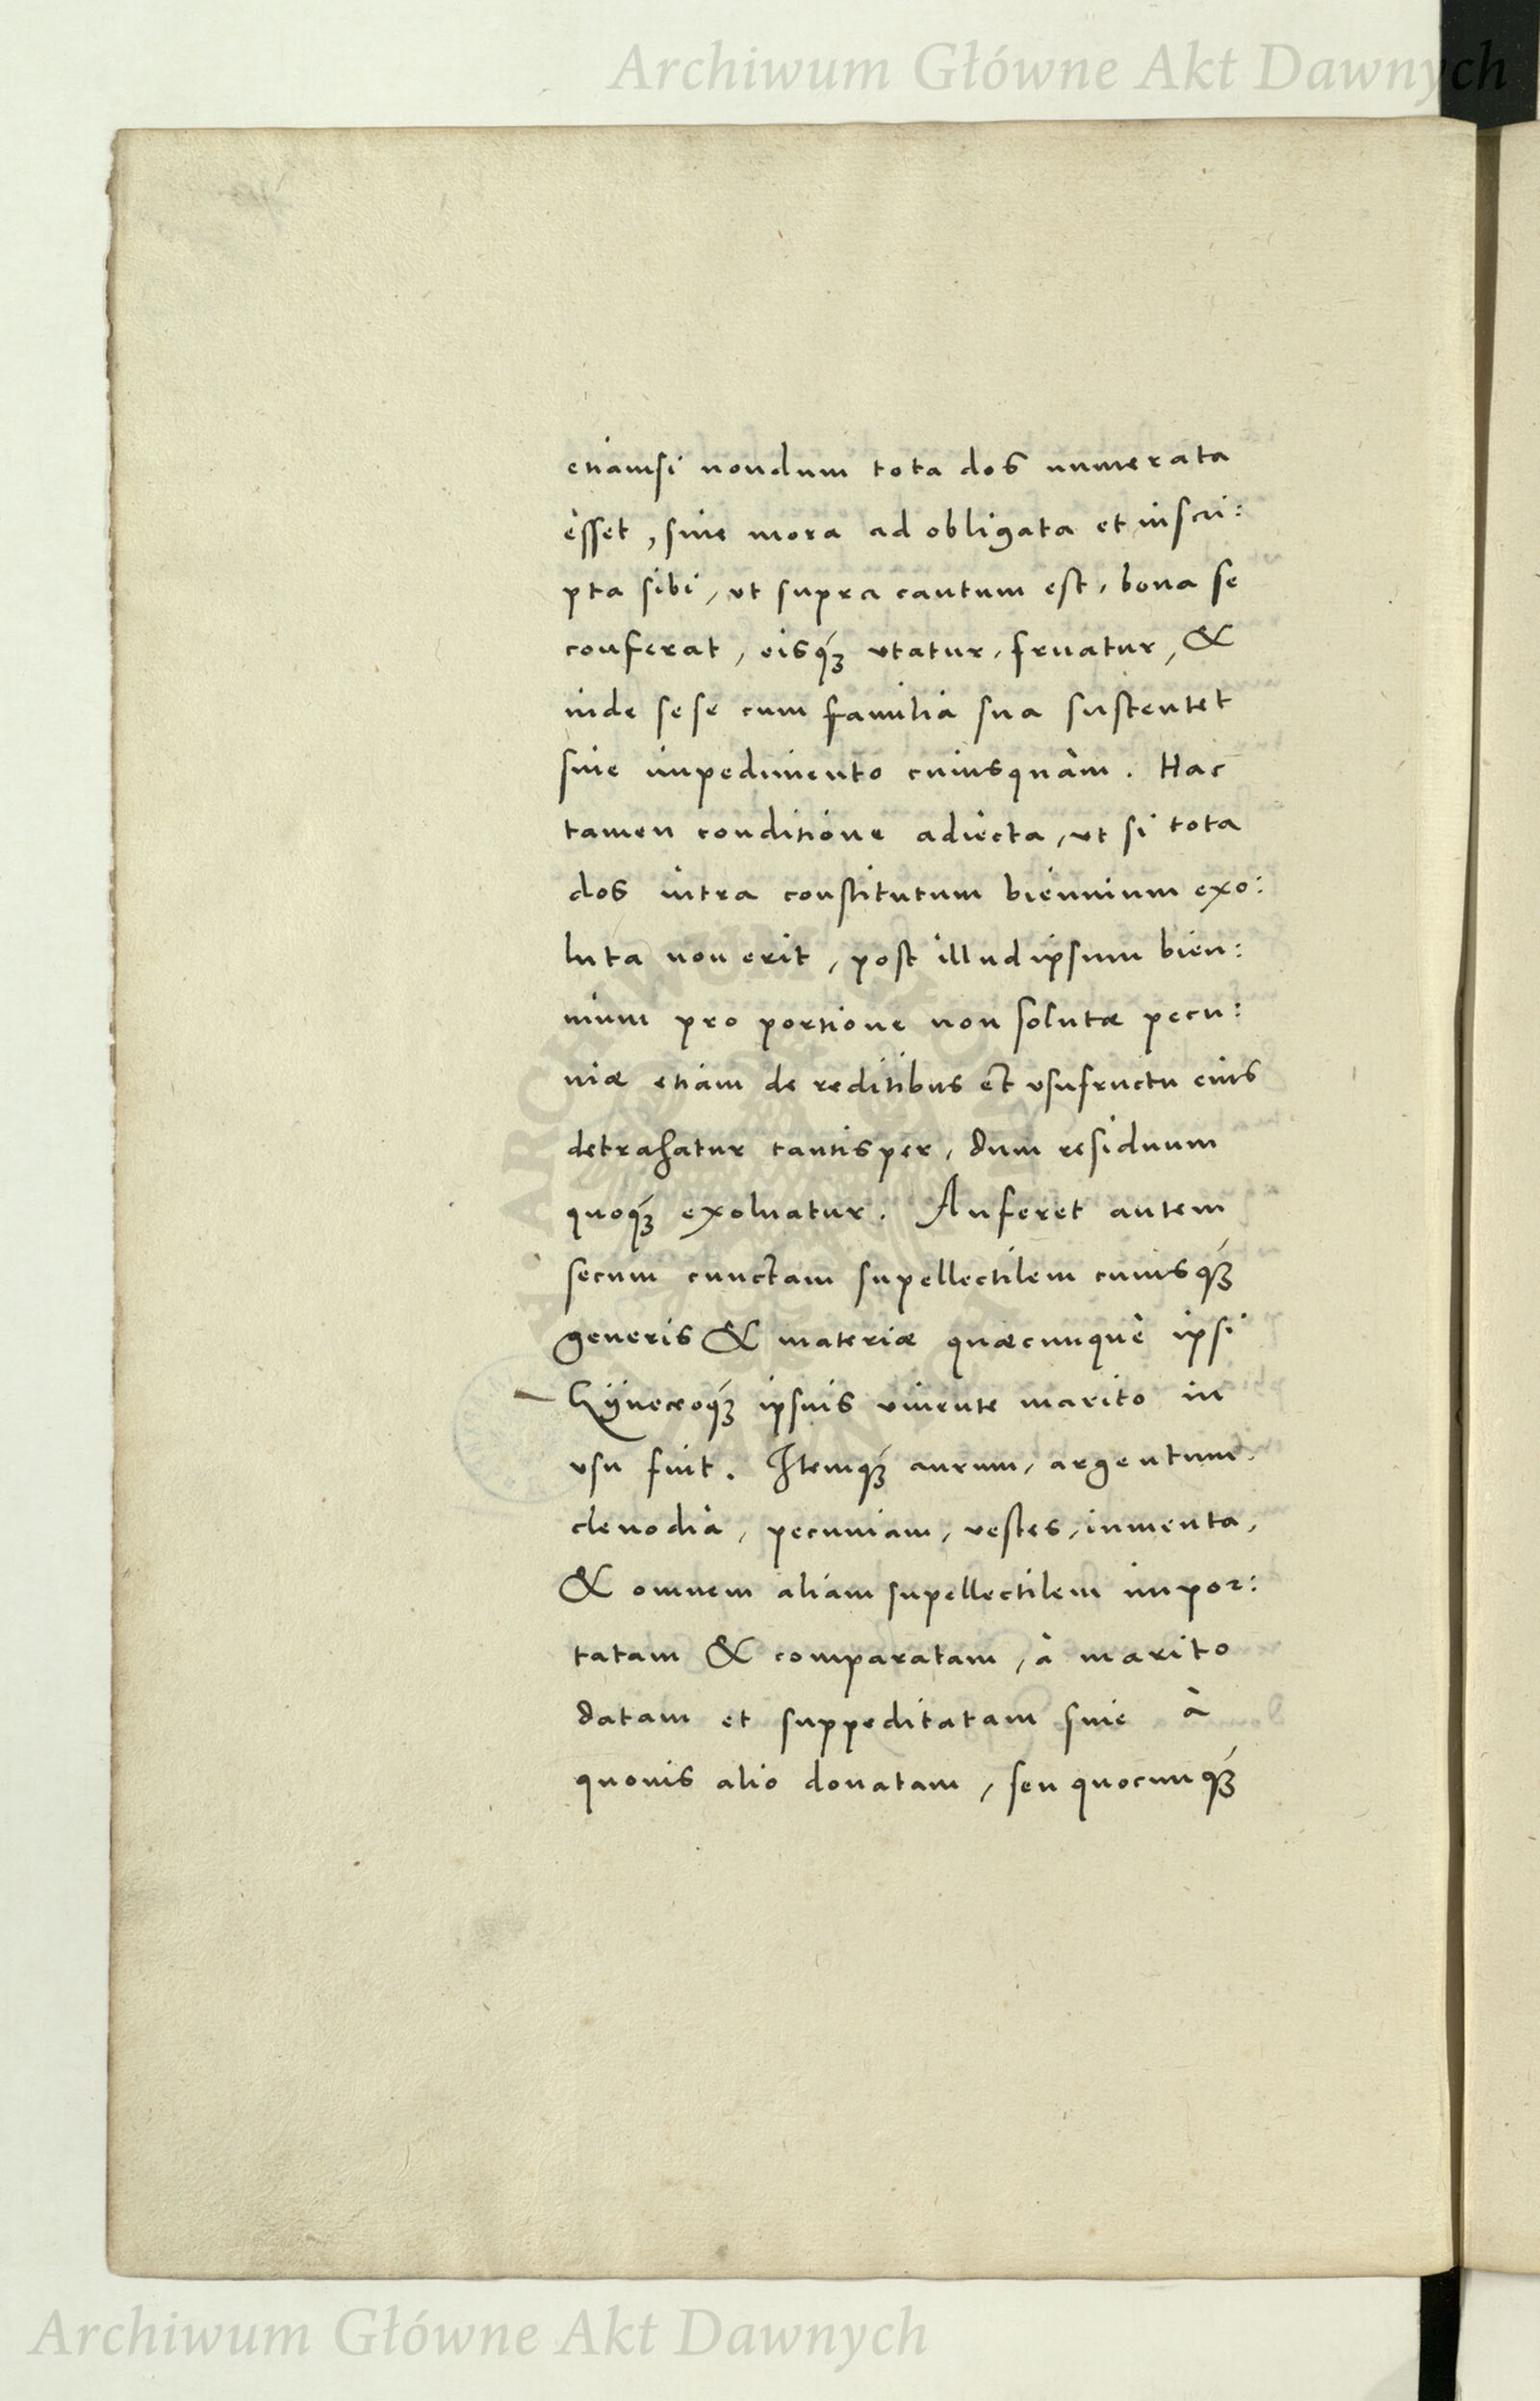 Archiwum Główne Akt Dawnych
etiamsi nondum tota dos numerata
esset, sine mora ad obligata et inscri:
pta sibi, vt supra cautum est, bona se
conferat, eisq́ꝫ vtatur, fruatur, &
inde sese cum familia sua sustentet
sine impedimento cuiusquàm. Hac
tamen conditione adiecta, vt si tota
dos intra constitutum biennium exo:
luta non erit, post illud ipsum bien:
nium pro portione non solutæ pecu:
niæ etiam de reditibus et vsufructu eius
detrahatur tantisper, dum residuum
quoq́ꝫ exoluatur. Auferet autem
secum cunctam supellectilem cuiusq́ꝫ
generis & materiæ quæcunquè ipsi
Gÿneceoq́ꝫ ipsius viuente marito in
vsu fuit. Itemq́ꝫ aurum, argentum.
clenodia, pecuniam, vestes, iumenta,
& omnem aliam supellectilem impor:
tatam & comparatam, à marito
datam et suppeditatam siue à
quouis alio donatam, seu quocunq́ꝫ
Archiwum Główne Akt Dawnych